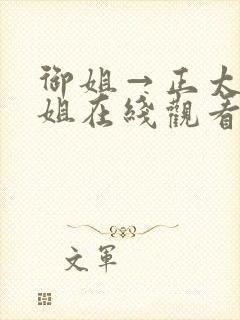 御姐→正大
姐在綫觀看
文軍